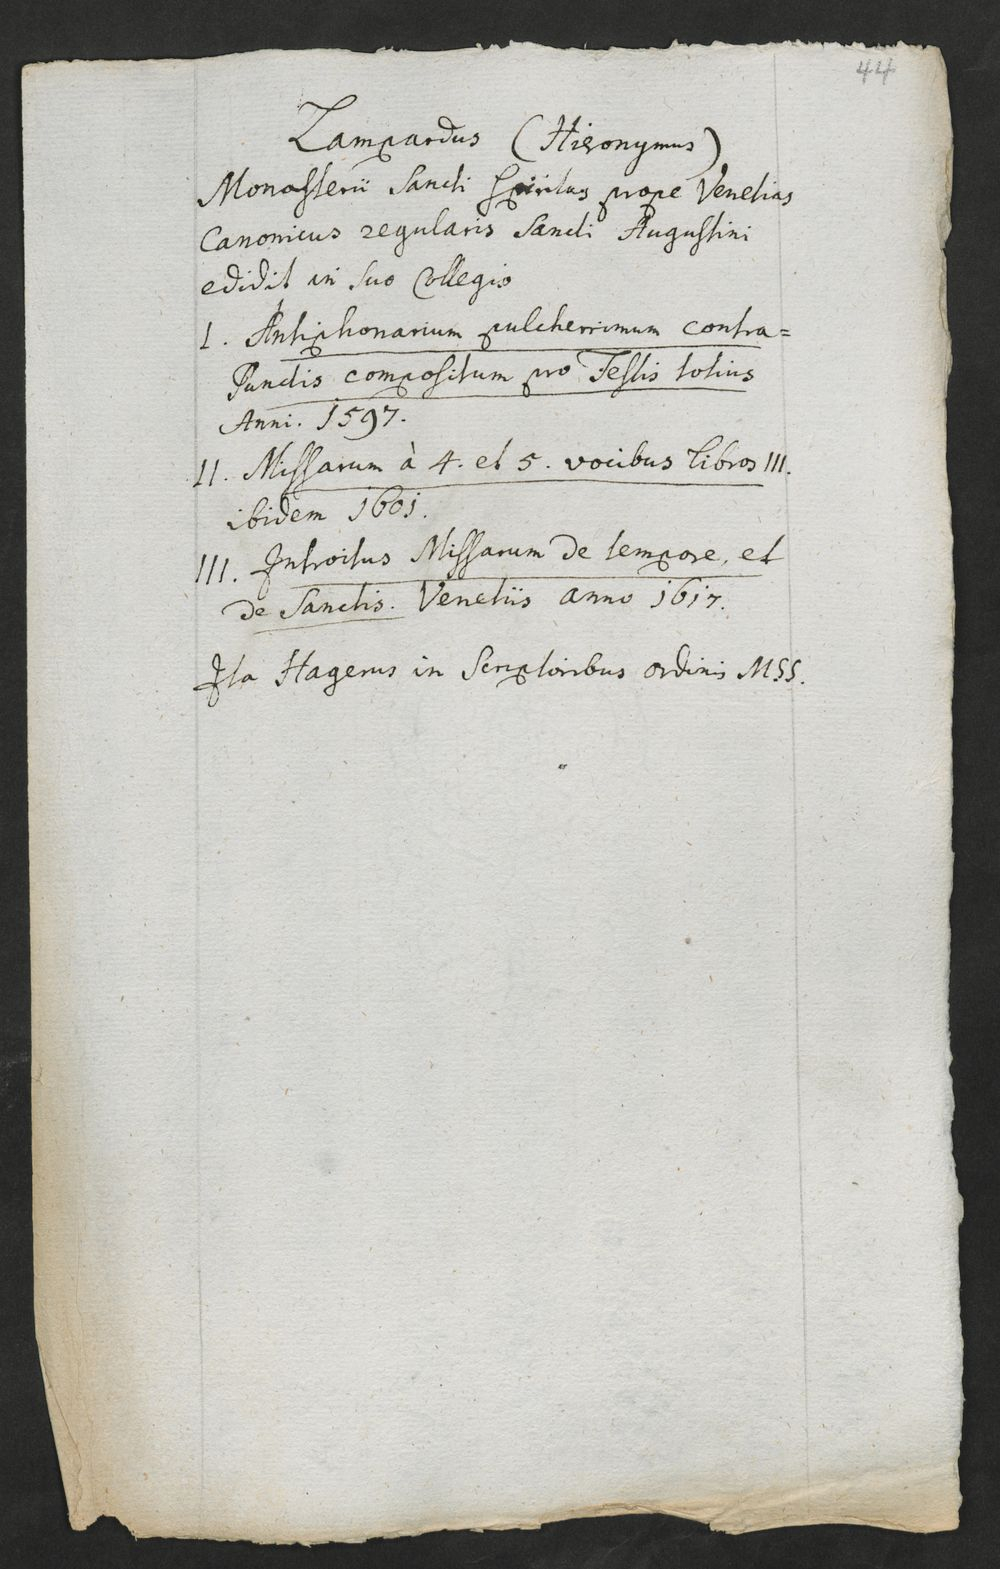 44
Lampardus (Hieronymus)
Monasterii Sancti Spiritus prope Venetias
Canonicus regularis Sancti Augustini
edidit in suo Collegio
I. Antiphonarium pulcherrimum contra=
Punctis compositum pro Festis totius
Anni. 1597.
II. Missarum à 4. et 5. vocibus Libros III.
ibidem 1601.
III. Introitus Missarum De tempore, et
De Sanctis. Venetiis anno 1617.
Ita Hagerus in Scriptoribus ordinis MSS.